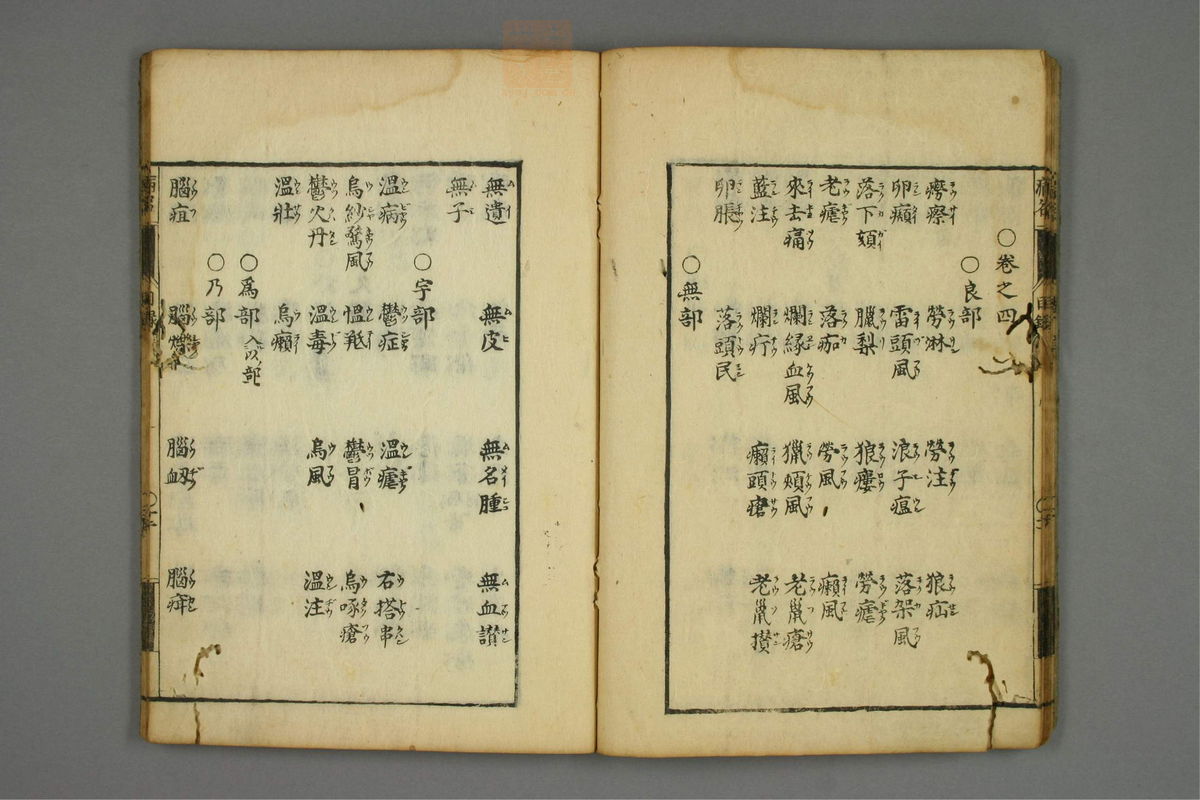 ○卷之四
○良部
癆瘵 勞淋 勞注 狼疝
卵癩 雷頭風 浪子瘟 落架風
落下頦 臘梨 狼瘻 勞瘧
老瘧 落茄 勞風 癩風
來去痛 爛緣血風 獵頰風 老鼠瘡
藍注 爛疔 癩頭瘡 老鼠攢
卵脹 落頭民
○無部
無遺 無皮 無名腫 無血讃
無子
○宇部
溫病 鬱症 溫瘧 右搭串
烏紗驚風 慍羝 鬱冒 烏啄瘡
鬱火丹 溫毒 烏風 溫注
溫壯 烏癩
○爲部 入以部
○乃部
腦疽 腦 腦衂 腦痹